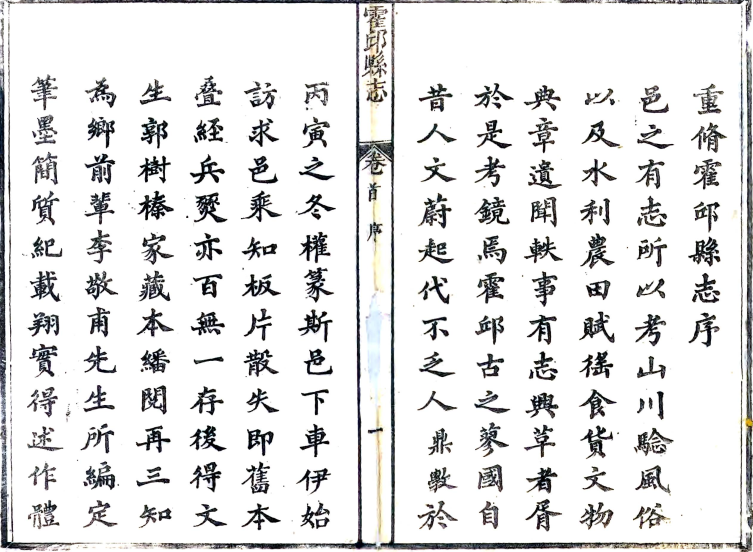 重脩霍邱縣志序
邑之有志所以考山川驗風俗
以及水利農田賦徭食貨文物
典章遺聞軼事有志興草者胥
於是考鏡焉霍邱古之蓼國自
昔人文蔚起代不乏人鼎斁於
霍邱縣志
卷首
序
一
丙寅之冬權篆斯邑下車伊始
訪求邑乘知板片散失即舊本
疊經兵燹亦百無一存後得文
生郭樹榛家藏本繙閱再三知
為鄉前輩李敬甫先生所編定
筆墨簡質紀載翔實得述作體